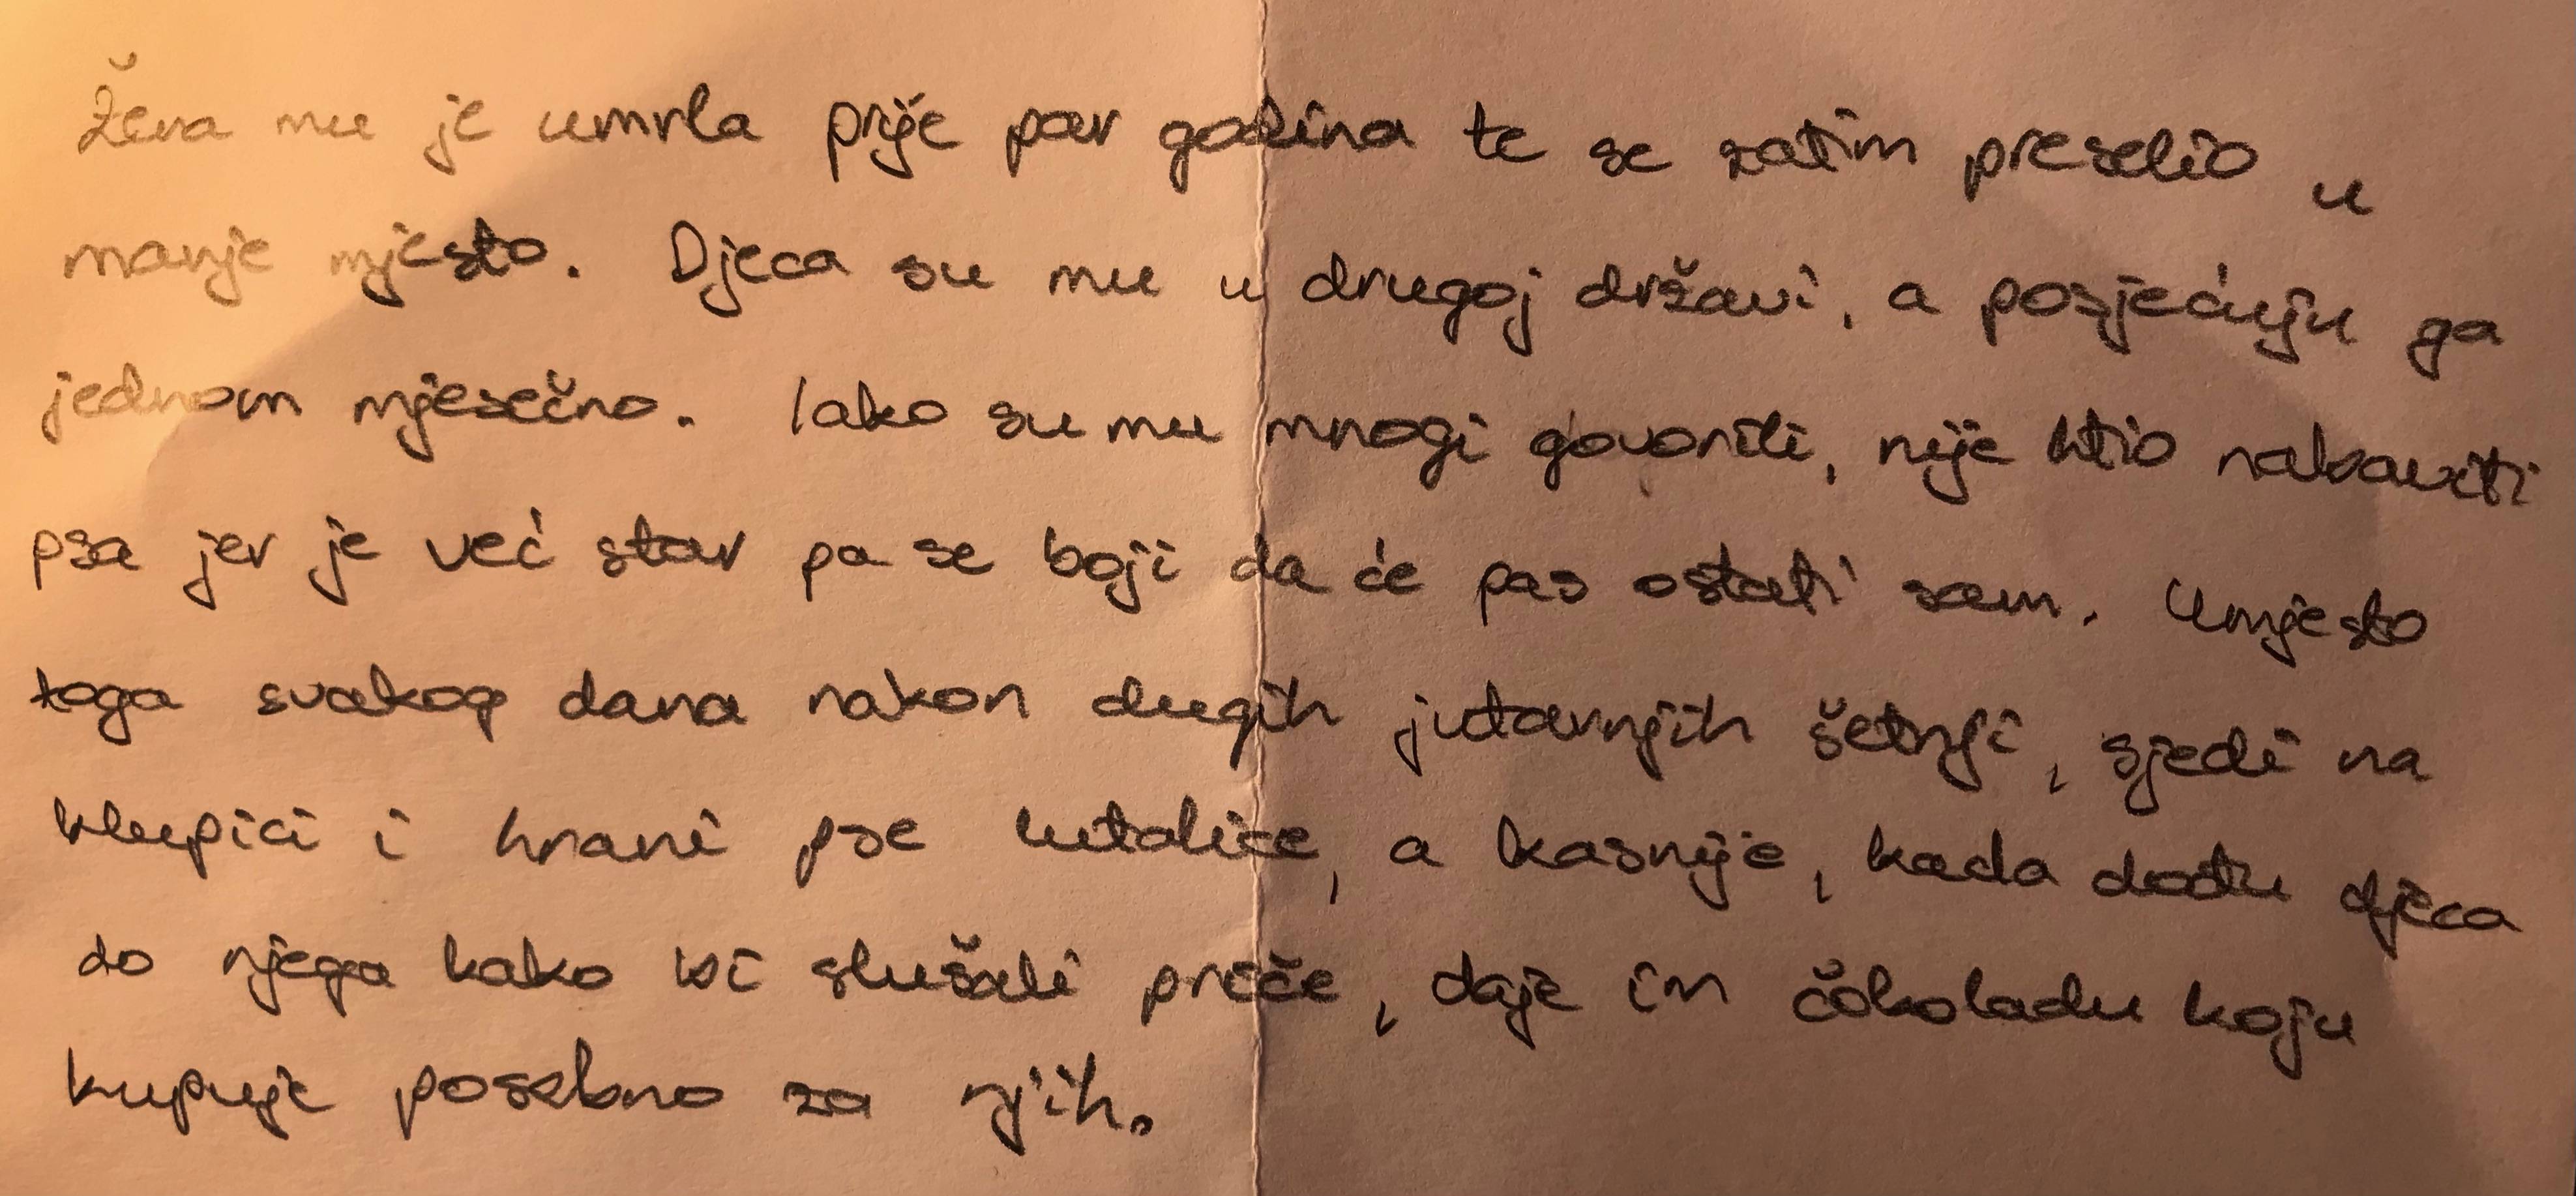 Žena mu je umrla prije par godina te se zatim preselio u
manje mjesto. Djeca su mu u drugoj državi, a posjećuju ga
jednom mjesečno. Iako su mu mnogi govorili, nije htio nabaviti
psa jer je već star pa se boji da će pas ostati sam. Umjesto
toga svakog dana nakon dugih jutarnjih šetnji, sjedi na
klupici i hrani pse lutalice, a kasnije, kada dođu djeca
do njega kako bi slušali priče, daje im čokoladu koju
kupuje posebno za njih.